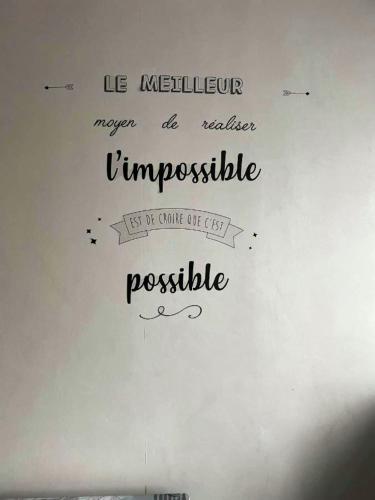 LE MEILLEUR
moyen de réaliser
l'impossible
EST DE CROIRE QUE C'EST
possible